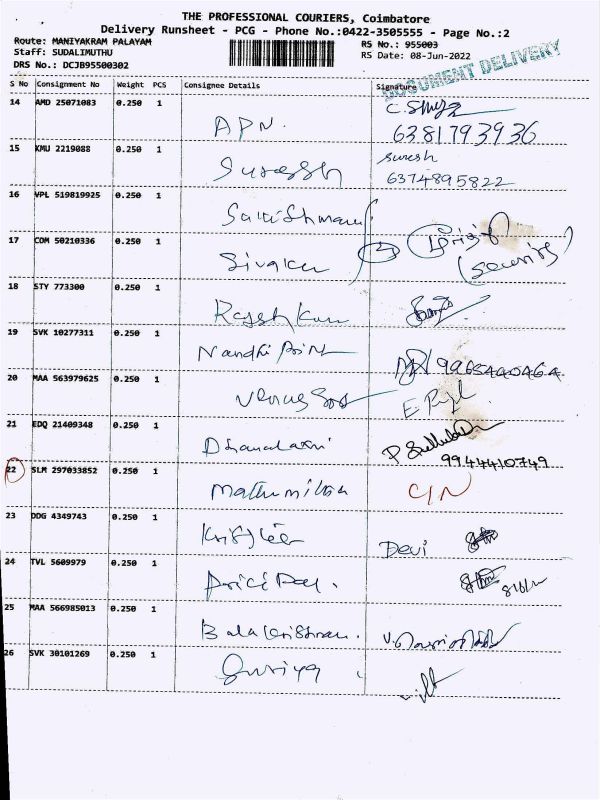 THE PROFESSIONAL COURIERS, Coimbatore
Delivery Runsheet - PCG - Phone No.:0422-3505555 - Page No.:2
Route: MANIYAKRAM PALAYAM RS No.: 955003
Staff: SUDALIMUTHU RS Date: 08-Jun-2022
DRS No.: DCJB95500302
DOCUMENT DELIVERY
S No Consignment No Weight PCS Consignee Details Signature
14 AMD 25071083 0.250 1 APN.
6381793936
15 KMU 2219088 0.250 1 Suresh suresh
6374895822
16 VPL 519819925 0.250 1
17 COM 50210336 0.250 1 Sivaku (security)
18 STY 773300 0.250 1 Rajesh Kum
19 SVK 10277311 0.250 1 Nandhi Print 9965440464
20 MAA 563979625 0.250 1
21 EDQ 21409348 0.250 1 Dhanalaxmi
9944410749
22 SLM 297033852 0.250 1 Mathumitha C/N
23 DDG 4349743 0.250 1 Devi
24 TVL 5609979 0.250 1
25 MAA 566985013 0.250 1 Balakrishnan.
26 SVK 30101269 0.250 1 Suriya